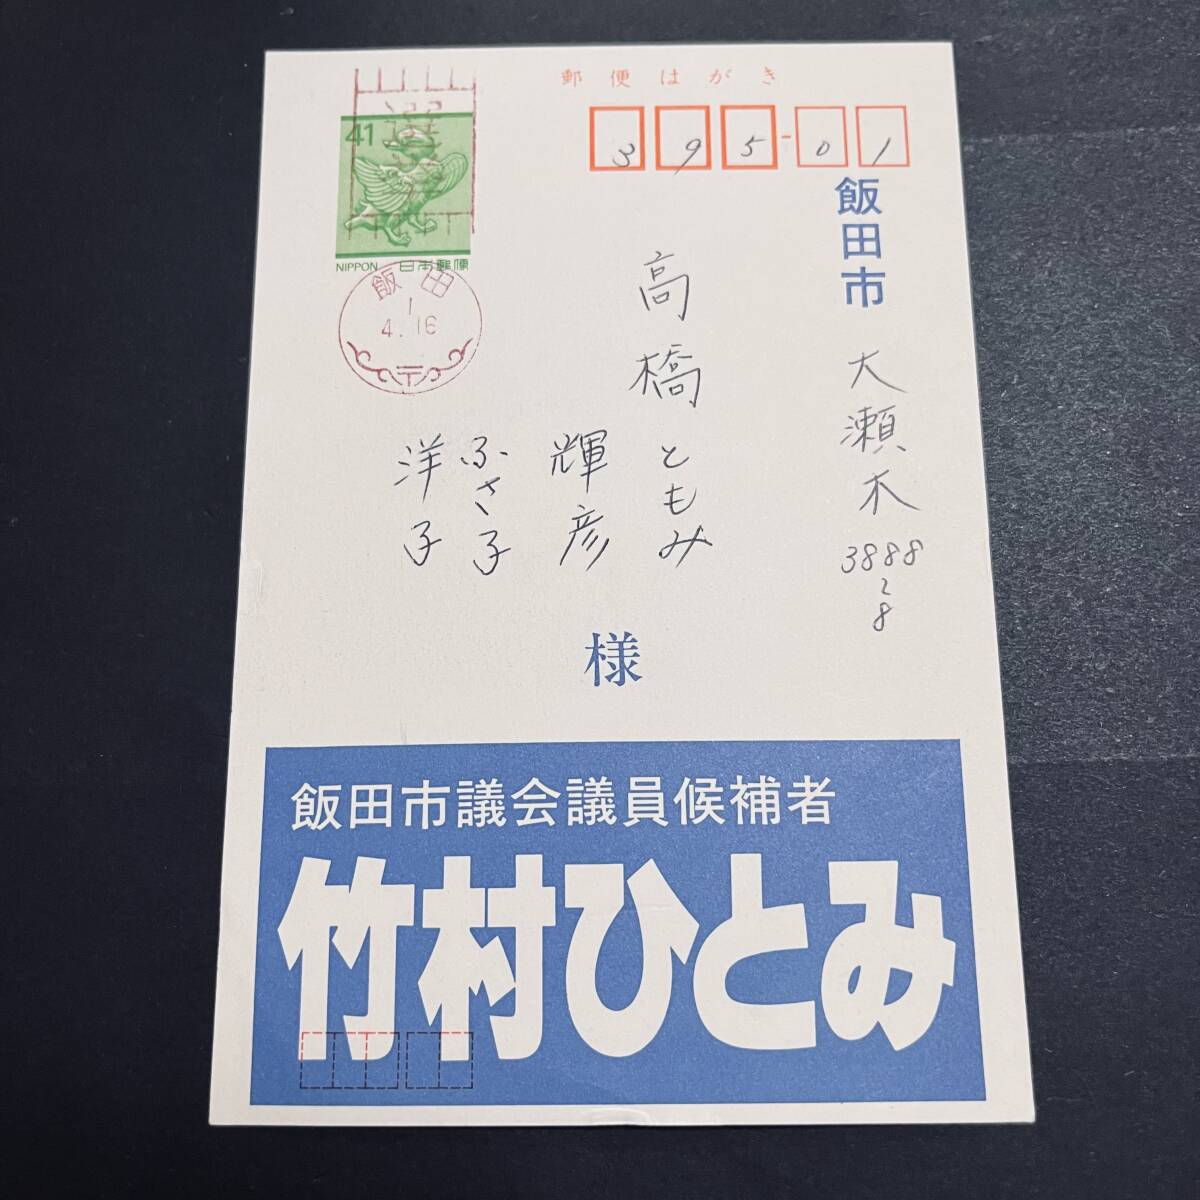 郵便はがき
395-01
41
選挙
NIPPON 日本郵便
飯田
1
4.16
〒
飯田市 大瀬木 3888
~
8
高橋ともみ
輝彦
ふさ子
洋子
様
飯田市議会議員候補者
竹村ひとみ